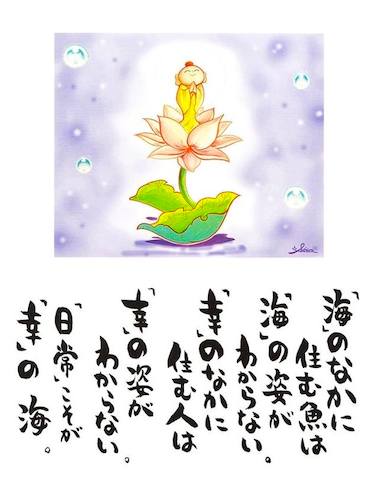 「海」のなかに
住む魚は
「海」の姿が
わからない。
「幸」のなかに
住む人は
「幸」の姿が
わからない。
「日常」こそが
「幸」の海。